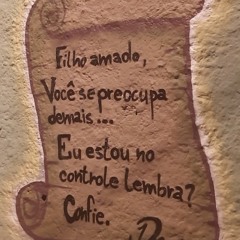 Filho amado,
Você se preocupa
demais...
Eu estou no
controle lembra?
Confie.